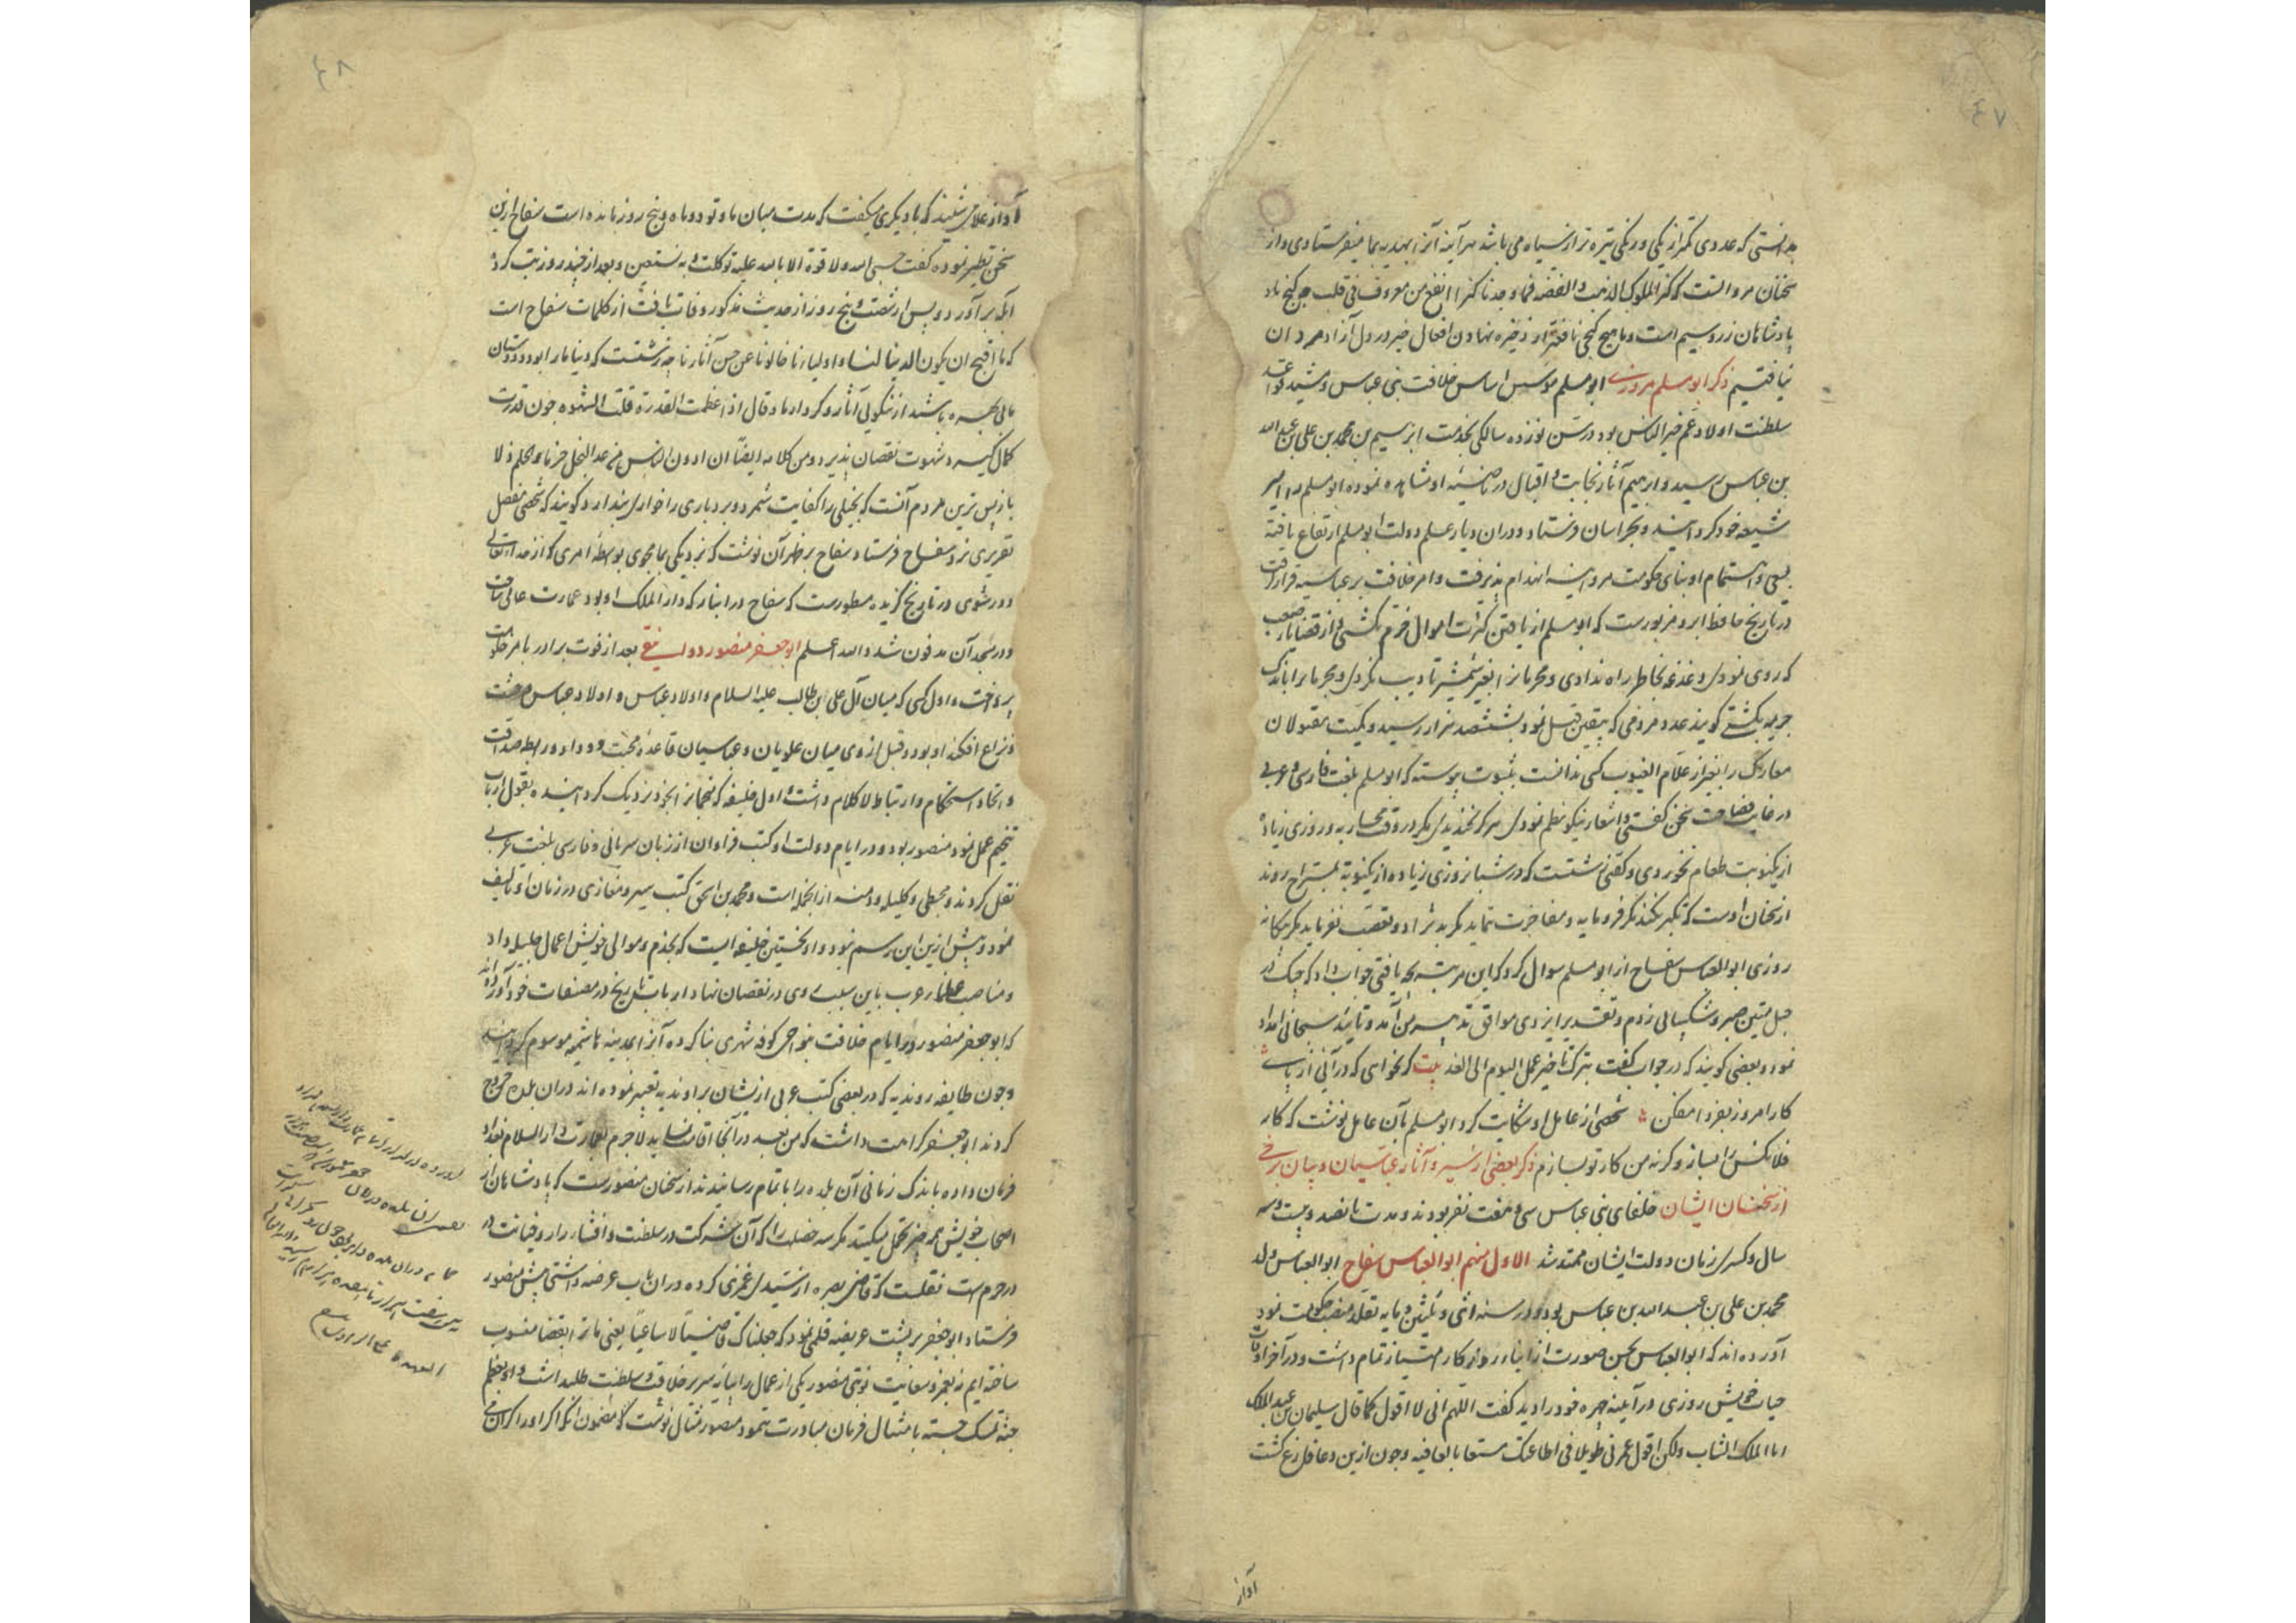 ٤٧
بدانستی که عددی کمتر از یکی و رنکی تیره تر از سیاه می باشد هر آینه آنرا بهدیه بما میفرستادی و از
سخنان مروانست که کنز الملوک الذهب و الفضه فما وجدنا کنزا انفع من معروف فی قلب حر کنج ناد
پادشاهان زر و سیم است و ما هیچ کنجی نافع تر از ذخیره نهادن افعال خیر در دل آزاد مردان
نیافتیم ذکر ابو مسلم مروزی ابو مسلم موسس اساس خلافت بنی عباس و مشید قواعد
سلطنت اولاد عم خیر الناس بود در سن نوزده سالکی بخدمت ابرهیم بن محمد بن علی بن عبد الله
بن عباس رسید و ابرهیم آثار نجابت و اقبال در ناصیه او مشاهده نموده ابو مسلم را امیر
شیعه خود کردانید و بخراسان فرستاد و دران دیار علم دولت ابو مسلم ارتفاع یافته
بسعی و اهتمام او بنای حکومت مروانیه انهدام پذیرفت و امر خلافت بر عباسیه قرار کرفت
در تاریخ حافظ ابرو مزبورست که ابو مسلم از یافتن کثرت اموال خرم نکشتی و از قضایاء صعب
که روی نمودی دغدغه بخاطر راه ندادی و مجرمانرا بغیر شمشیر تادیب نکردی و مجرمانرا باندک
جریمه بکشتی کویند عدد مردمی که بیقین قتل نمود بششصد هزار رسید و کمیت مقتولان
معارک را بغیر از علام الغیوب کسی ندانست بثبوت پیوسته که ابو مسلم بلغت فارسی و عربی
در غایت فصاحت سخن کفتی و اشعار نیکو نظم نمودی هرکز نخندیدی مکر در وقت محاربه و روزی زیاده
از یکنوبت طعام نخوردی و کفتی زشتست که در شبانروزی زیاده از یکنوبه بمستراح روند
از سخنان اوست که تکبر نکند مکر فرومایه و مفاخرت ننماید مکر بد نژاد و تعصب نفرماید مکر بیکانه
روزی ابو العباس سفاح از ابو مسلم سوال کرد که این مرتبه بچه یافتی جواب داد که چنک در
حبل متین صبر و شکیبائی زدم و تقدیر ایزدی موافق تدبیر من آمد و تایید سبحانی امداد
نمود و بعضی کویند که در جواب کفت بترک تاخیر عمل الیوم الی الغد بیت کر نخواهی که در آئی از پای
کار امروز بفردا مفکن شخصی از عامل او شکایت کرد ابو مسلم بآن عامل نوشت که کار
فلانکس را بساز و کرنه من کار تو بسازم ذکر بعضی از سیر و آثار عباسیان و بیان برخی
از سخنان ایشان خلفای بنی عباس سی و هفت نفر بودند و مدت پانصد و بیست و سه
سال و کسری زمان دولت ایشان ممتد شد الاول منهم ابو العباس سفاح ابو العباس ولد
محمد بن علی بن عبد الله بن عباس بود و در سنه اثنی و ثلثین و مایه تقلد منصب حکومت نمود
آورده اند که ابو العباس بحسن صورت از ابناء روزکار امتیاز تمام داشت و در آخر اوقات
حیات خویش روزی در آیینه چهره خود را دید کفت اللهم انی لا اقول کما قال سلیمان بن عبد الملک
انا الملک الشاب ولکن اقول عمرنی طویلا فی اطاعتک متمتعا بالعافیه و چون ازین دعا فارغ کشت
آواز
٤٨
آواز غلامی شنید که با دیکری میکفت که مدت میان ما و تو دو ماه و پنج روز مانده است سفاح ازین
سخن تطیر نموده کفت حسبی الله و لا قوة الا بالله علیه توکلت و به نستعین و بعد از چند روز تب کرده
آبله بر آورد و پس از شصت و پنج روز از حدیث مذکور وفات یافت از کلمات سفاح است
که ما اقبح ان یکون الدنیا لنا و اولیاءنا خالون عن حسن آثارنا چه زشتست که دنیا ما را بود و دوستان
ما بی بهره باشند از نیکوئی آثار و کردار ما و قال اذا عظمت القدرة قلت الشهوه چون قدرت
کمال کیرد شهوت نقصان پذیرد و من کلامه ایضا ان ادون الناس من عد البخل حزما و الحلم ذلا
باز پس ترین مردم آنست که بخیلی را کفایت شمرد و بردباری را خواری پندارد کویند که شخصی مفصل
تقریری نزد سفاح فرستاد سفاح بر ظهر آن نوشت که نزدیکی بما مجوی بواسطه امری که از خدا تعالی
دور شوی در تاریخ کزیده مسطورست که سفاح در انبار که دار الملک او بود عمارت عالی ساخت
و در مسجد آن مدفون شد و الله اعلم ابو جعفر منصور دوانیقی بعد از فوت برادر بامر خلافت
پرداخت و اول کسی که میان آل علی بن ابی طالب علیه السلام و اولاد عباس وحشت
و نزاع افکند او بود و قبل از وی میان علویان و عباسیان قاعده محبت و وداد و رابطه صداقت
و اتحاد استحکام و ارتباط لاکلام داشت و اول خلیفه که منجمانرا بخود نزدیک کردانیده بقول ارباب
تنجیم عمل نمود منصور بود و در ایام دولت او کتب فراوان از زبان سریانی و فارسی بلغت عربی
نقل کردند و مجسطی و کلیله و دمنه از انجمله است و محمد بن اسحق کتب سیر و مغازی در زمان او تالیف
نمود و پیش ازین این رسم نبود و او نخستین خلیفه ایست که بخدم و موالی خویش اعمال جلیله داد
و مناصب عظماء عرب باین سبب روی در نقصان نهاد ارباب تاریخ در مصنفات خود آورده اند
که ابو جعفر منصور در ایام خلافت بنواحی کوفه شهری بنا کرده آنرا بمدینه هاشمیه موسوم کردانید
و چون طایفه روندیه که در بعضی کتب عربی ازیشان براوندیه تعبیر نموده اند دران بلده خروج
کردند ابو جعفر کراهت داشت که من بعد در آنجا اقامت نماید لا جرم بعمارت دار السلام بغداد
فرمان داده باندک زمانی آن بلده را باتمام رسانیدند از سخنان منصورست که پادشاهان از
اصحاب خویش همه چیز تحمل میکنند مکر سه خصلت را که آن شرکت در سلطنت و افشاء راز و خیانت در
حرم است نقلست که قاضی بصره از سیدی غمزی کرده دران باب عرضه داشتی پیش منصور
فرستاد ابو جعفر بر پشت عریضه قلمی نمود که جعلناک قاضیا لا ساعیا یعنی ما ترا بقضا منسوب
ساخته ایم نه بغمز و سعایت نوبتی منصور یکی از عمال را بپایه سریر خلافت و سلطنت طلبداشت و او بعلل
جسته تمسک جسته بامتثال فرمان مبادرت ننمود منصور مثال نوشت که مضمون آنکه اکر او را کران می